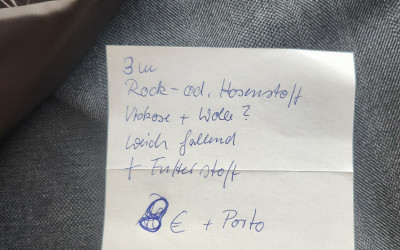 3 m
Rock- od. Hosenstoff
Viskose + Wolle?
weich fallend
+ Futterstoff
8 € + Porto